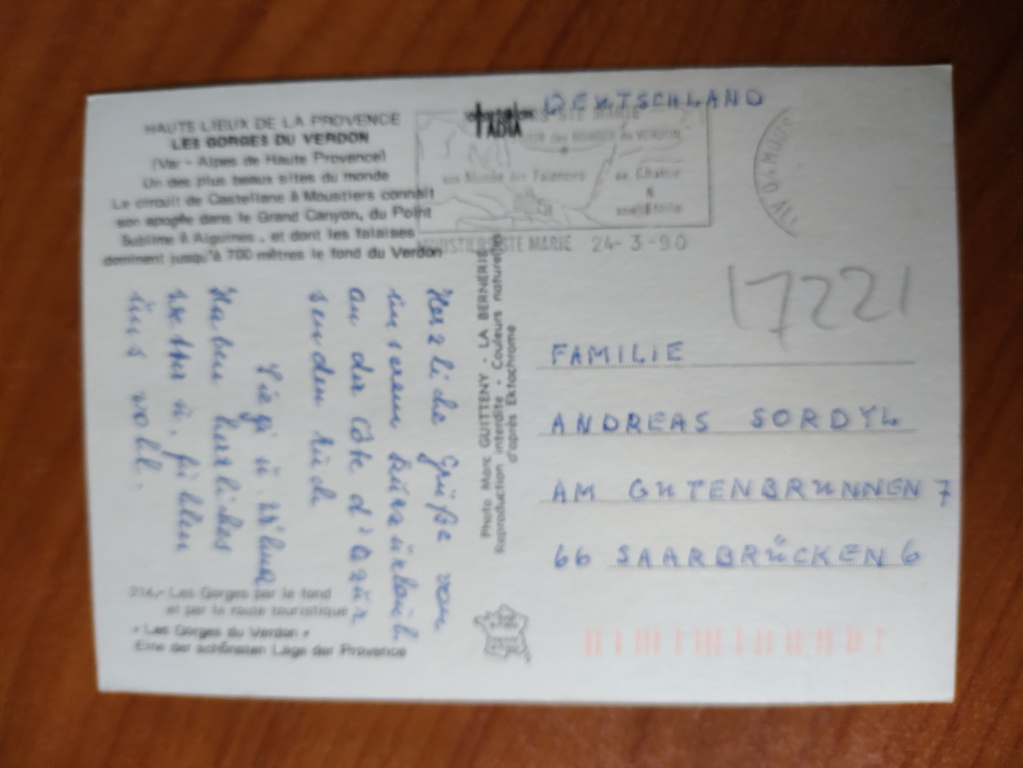 HAUTS LIEUX DE LA PROVENCE
LES GORGES DU VERDON
(Var - Alpes de Haute Provence)
Un des plus beaux sites du monde
Le circuit de Castellane à Moustiers connaît
son apogée dans le Grand Canyon, du Point
Sublime à Aiguines, et dont les falaises
dominent jusqu'à 700 mètres le fond du Verdon
Herzliche Grüße von
unserem Kurzurlaub
an der Côte d'Azur
senden Euch
Sigi u.
Haben herrliches
Wetter u. fühlen
uns wohl.
214.- Les Gorges par le fond
et par la route touristique
« Les Gorges du Verdon »
Eine der schönsten Lage der Provence
ADIA
Photo Marc GUITTENY - LA BERNERIE
Reproduction interdite - Couleurs naturelles
d'après Ektachrome
DEUTSCHLAND
STE MARIE
son Musée des Faïences
sa Chaîne
&
son Etoile
MOUSTIERS STE MARIE 24-3-90
04 MOUS
AL
17221
FAMILIE
ANDREAS SORDYL
AM GUTENBRUNNEN 7
66 SAARBRÜCKEN 6